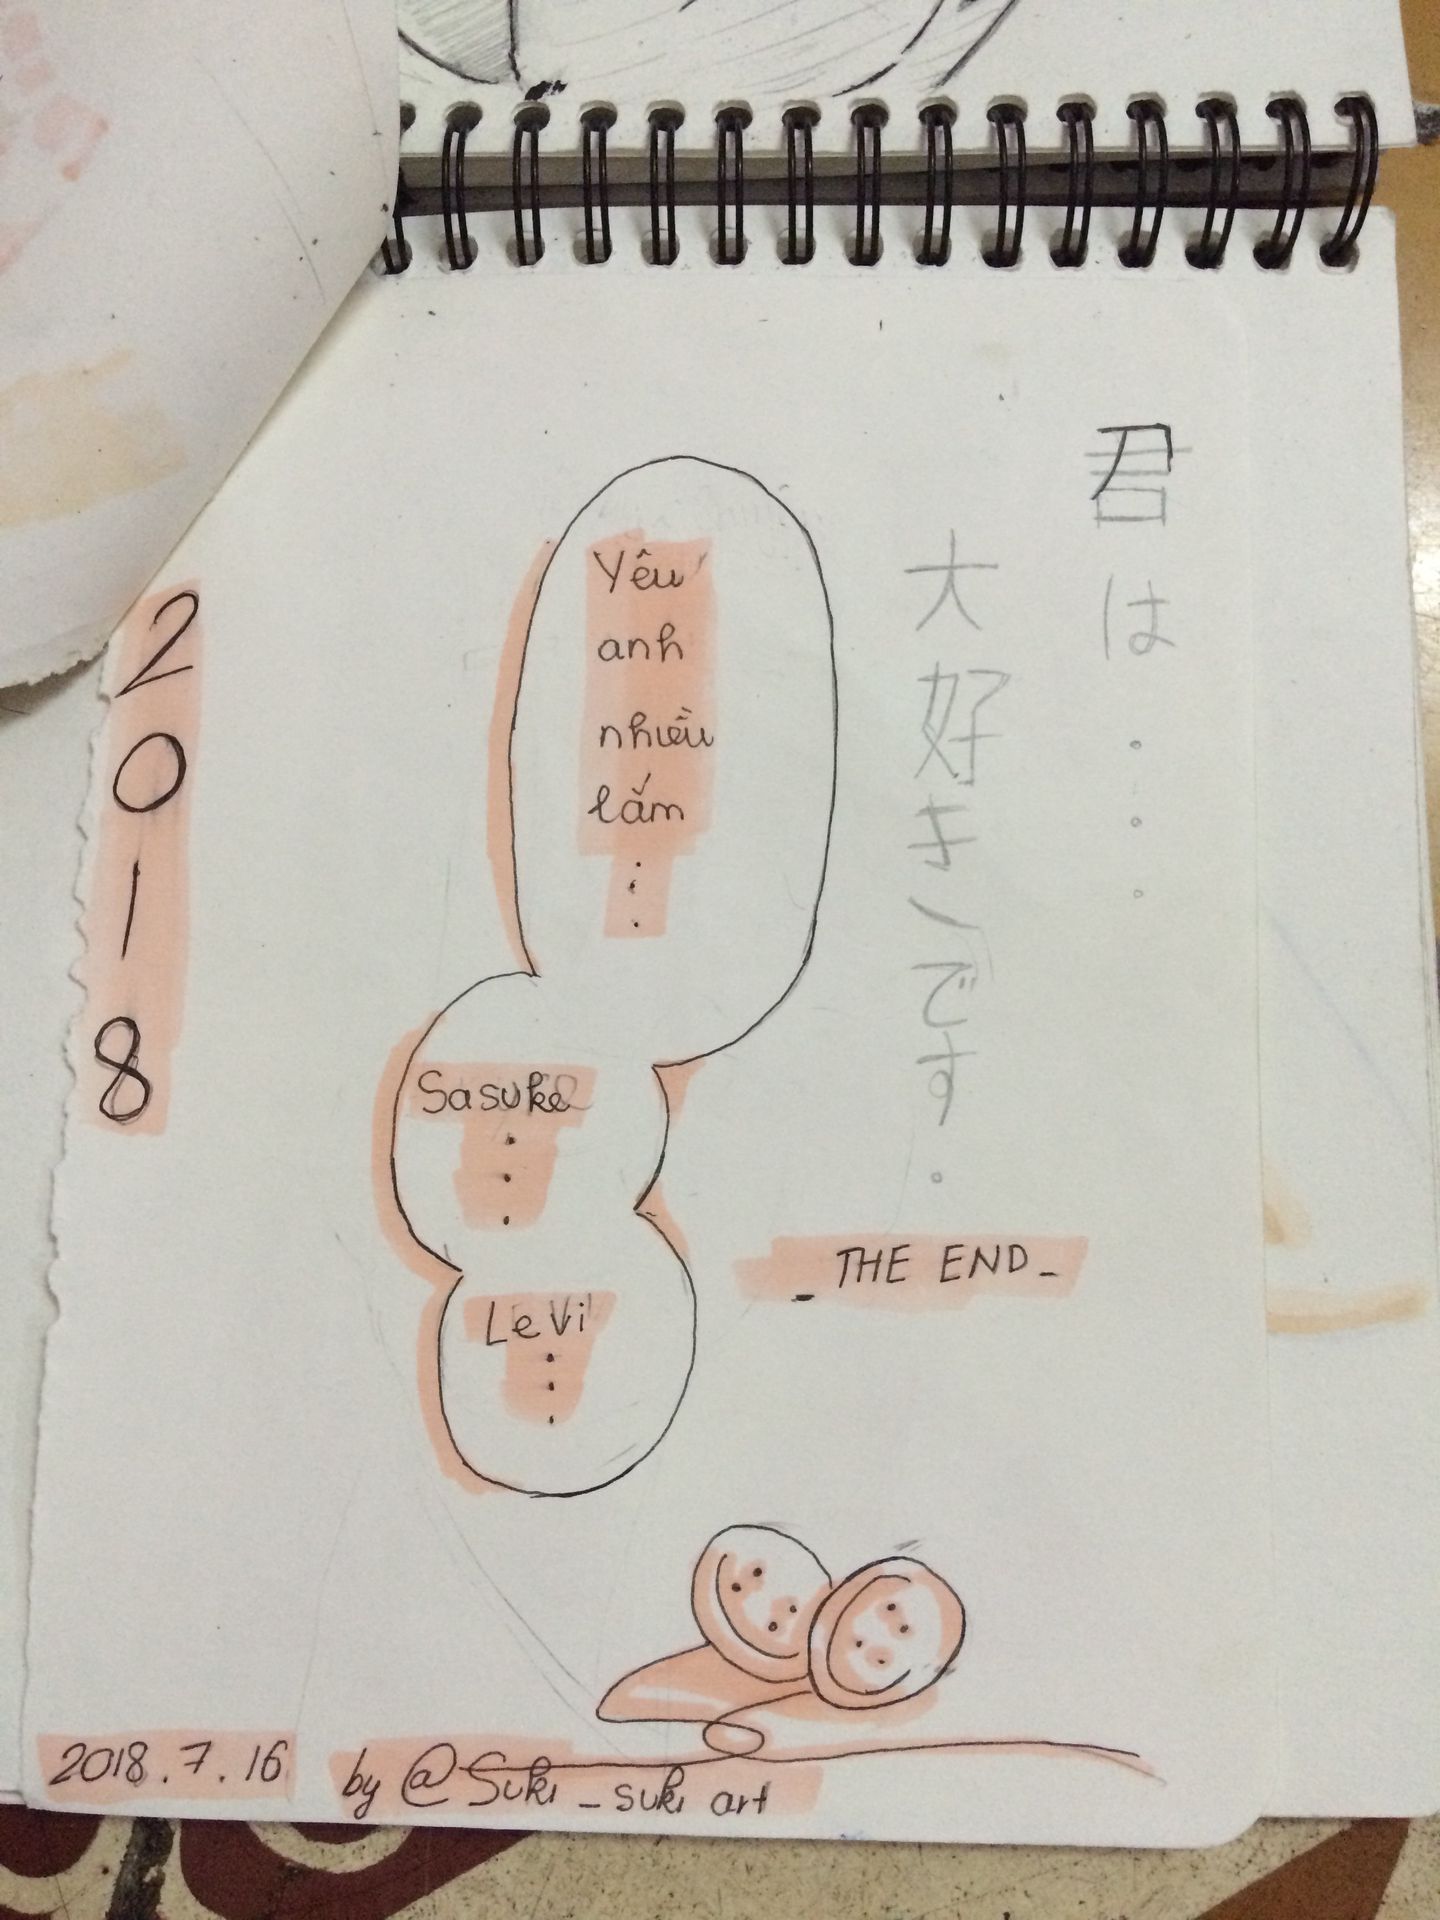 君は...
大好きです.
Yêu
anh
nhiều
lắm
...
Sasuke
...
Levi
...
2018
_ THE END _
2018.7.16
by @Suki_suki art